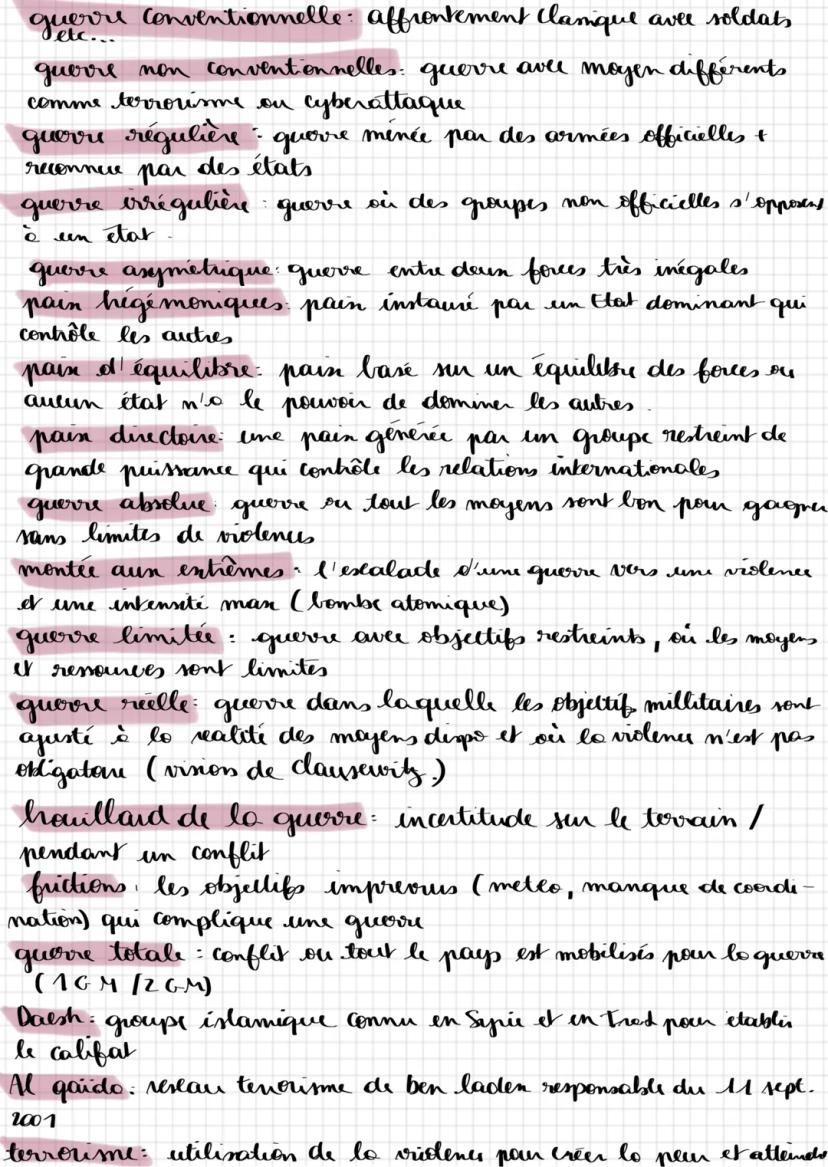 guerre conventionnelle : affrontement classique avec soldats
etc...
guerre non conventionnelles : guerre avec moyen différents
comme terrorisme ou cyberattaque
guerre régulière : guerre ménée par des armées officielles +
reconnue par des états
guerre irrégulière : guerre où des groupes non officielles s'opposent
à un état.
guerre asymétrique : guerre entre deux forces très inégales
paix hégémoniques : paix instauré par un Etat dominant qui
contrôle les autres
paix d'équilibre : paix basé sur un équilibre des forces ou
aucun état n'a le pouvoir de dominer les autres.
paix directoire : une paix générée par un groupe restreint de
grande puissance qui contrôle les relations internationales
guerre absolue : guerre ou tout les moyens sont bon pour gagner
sans limites de violences
montée aux extrêmes : l'escalade d'une guerre vers une violence
et une intensité max (bombe atomique)
guerre limitée : guerre avec objectifs restreints, où les moyens
et ressources sont limites
guerre réelle : guerre dans laquelle les objectif millitaires sont
ajusté à la realité des moyens dispo et où la violence n'est pas
obligatoire (vision de Clausewitz)
brouillard de la guerre : incertitude sur le terrain /
pendant un conflit
frictions : les objectifs imprevus (meteo, manque de coordi-
nation) qui complique une guerre
guerre totale : conflit ou tout le pays est mobilisés pour la guerre
(1GM /2GM)
Daesh : groupe islamique connu en Syrie et en pour etablir
le califat
Al qaïda : reseau terrorisme de ben laden responsable du 11 sept.
2001
terrorisme : utilisation de la violence pour créer la peur et atteindre